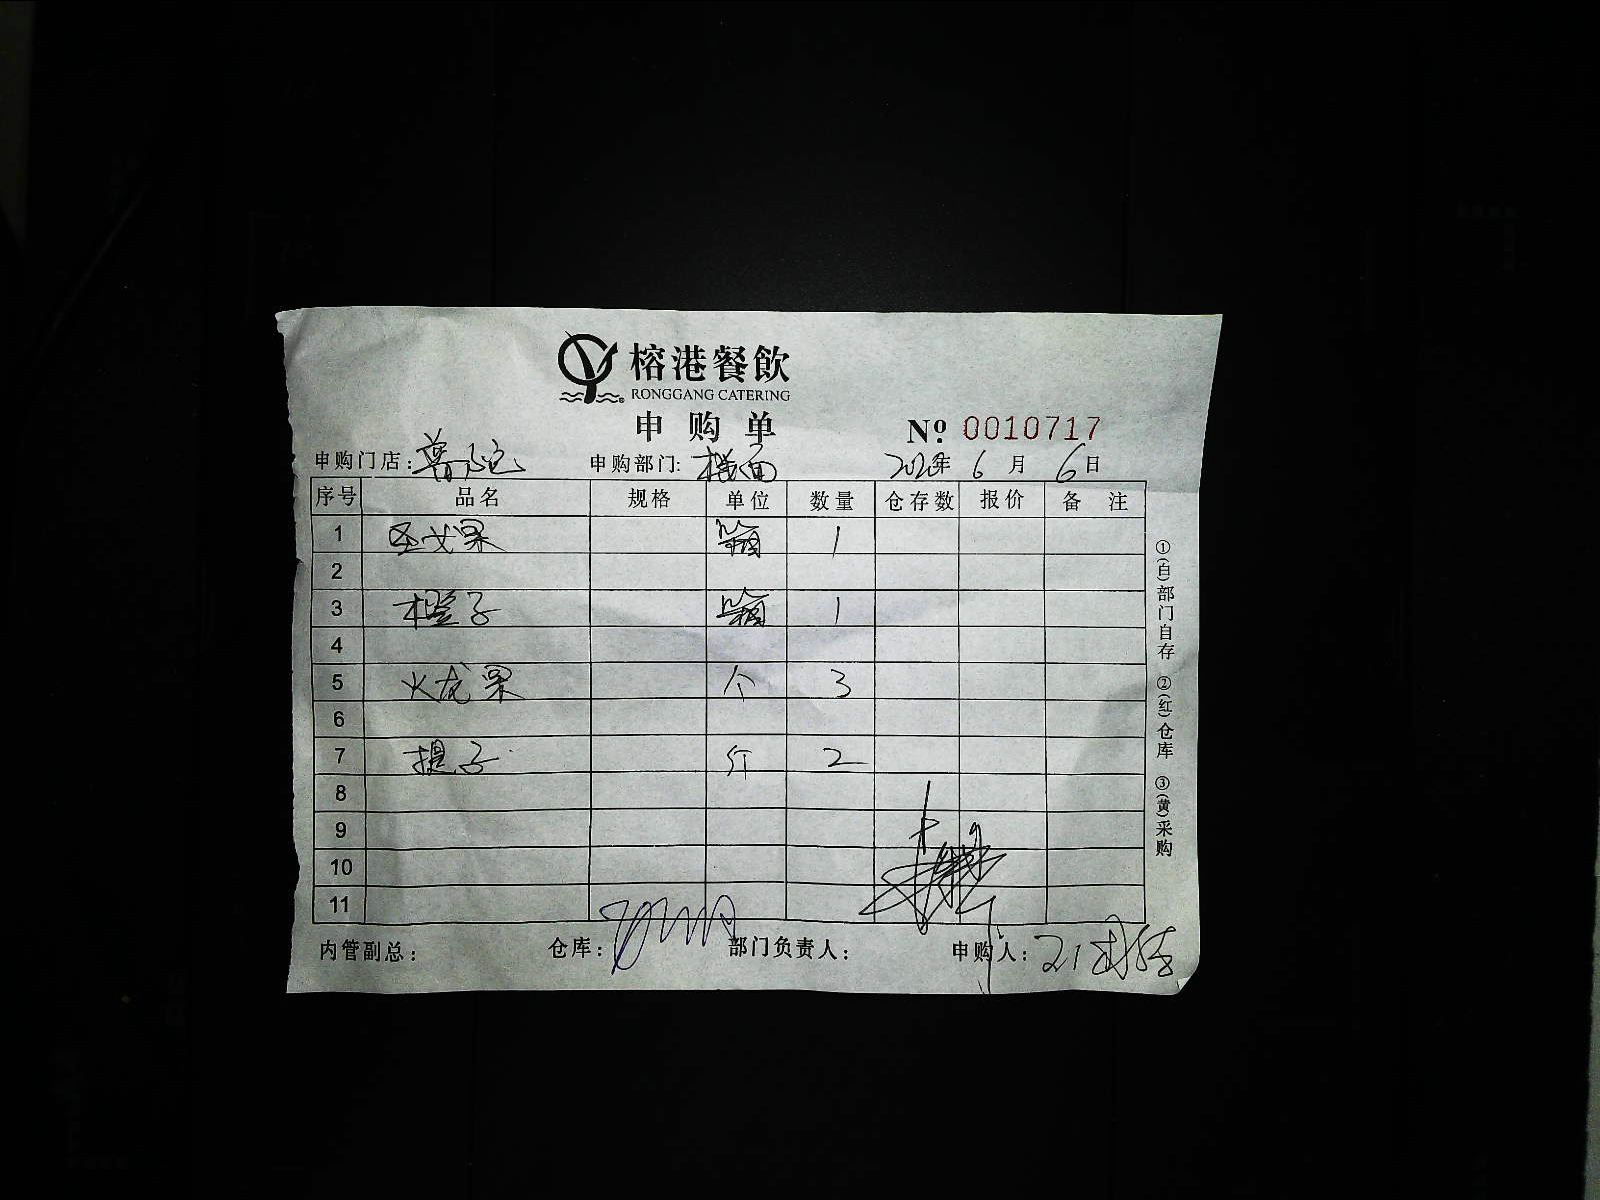 榕港餐飲
RONGGANG CATERING
申购单
No. 0010717
申购门店: 普陀 申购部门: 楼面 2020年 6月 6日
序号 品名 规格 单位 数量 仓存数 报价 备注
1 圣女果 箱 1
2
3 橙子 箱 1
4
5 火龙果 个 3
6
7 提子 斤 2
8
9
10
11
内管副总: 仓库: 部门负责人: 申购人:
①(白)部门自存 ②(红)仓库 ③(黄)采购